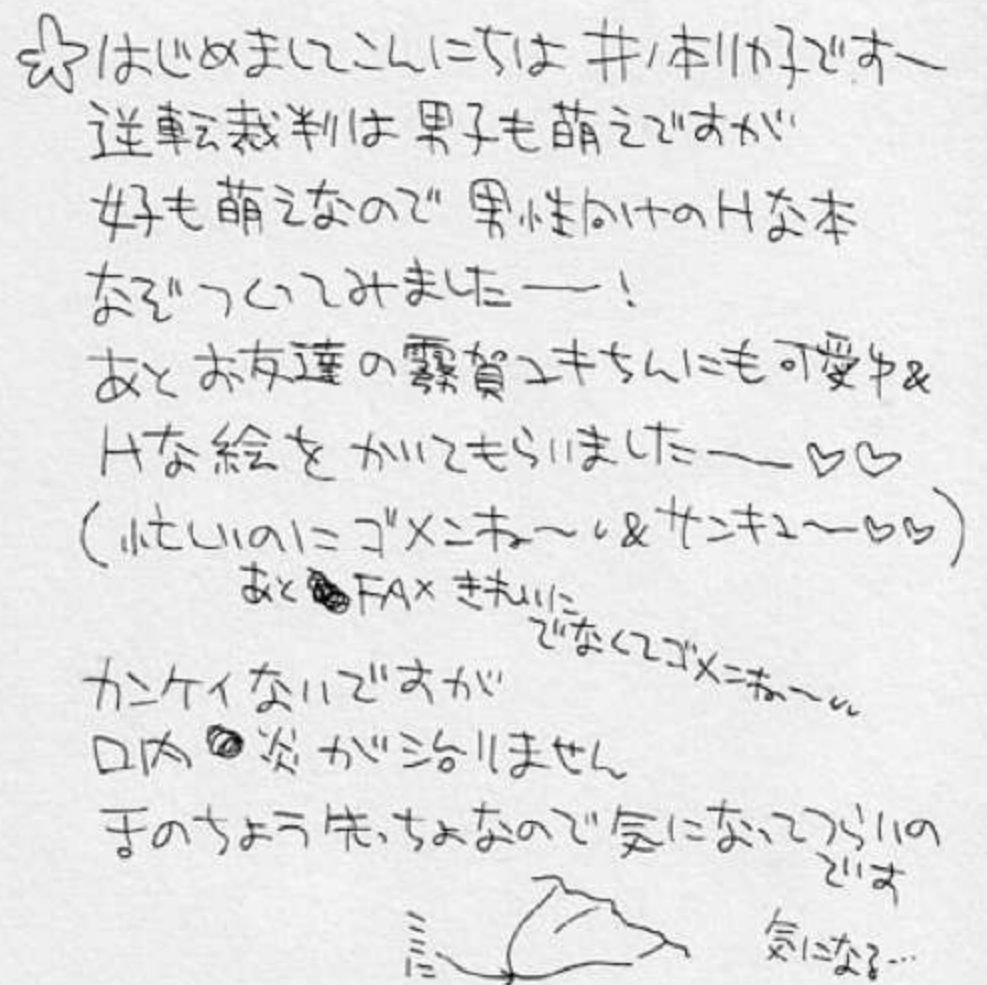 ☆はじめましてこんにちは 井ノ本リカ子です〜
逆転裁判は男子も萌えですが
女子も萌えなので 男性向けのHな本
なぞつくってみましたー!
あと お友達の霧賀ユキちゃんにも可愛ゆ&
Hな絵をかいてもらいましたー♡♡
(忙しいのにゴメンネ〜&サンキュ〜♡♡)
あと FAXきれいに
でなくてゴメンネ〜
カンケイないですが
口内炎が治りません
舌のちょう先っちょなので気になってつらいの
です
ここに
気になる…